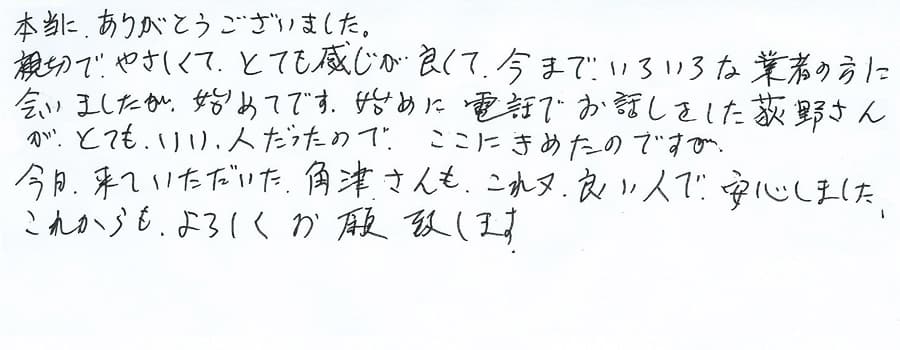 本当に、ありがとうございました。
親切で、やさしくて、とても感じが良くて、今まで、いろいろな業者の方に
会いましたが、始めてです。始めに電話でお話しをした荻野さん
が、とても、いい、人だったので、ここにきめたのですが、
今日、来ていただいた、角津さんも、これ又、良い人で、安心しました、
これからも、よろしくお願致します。